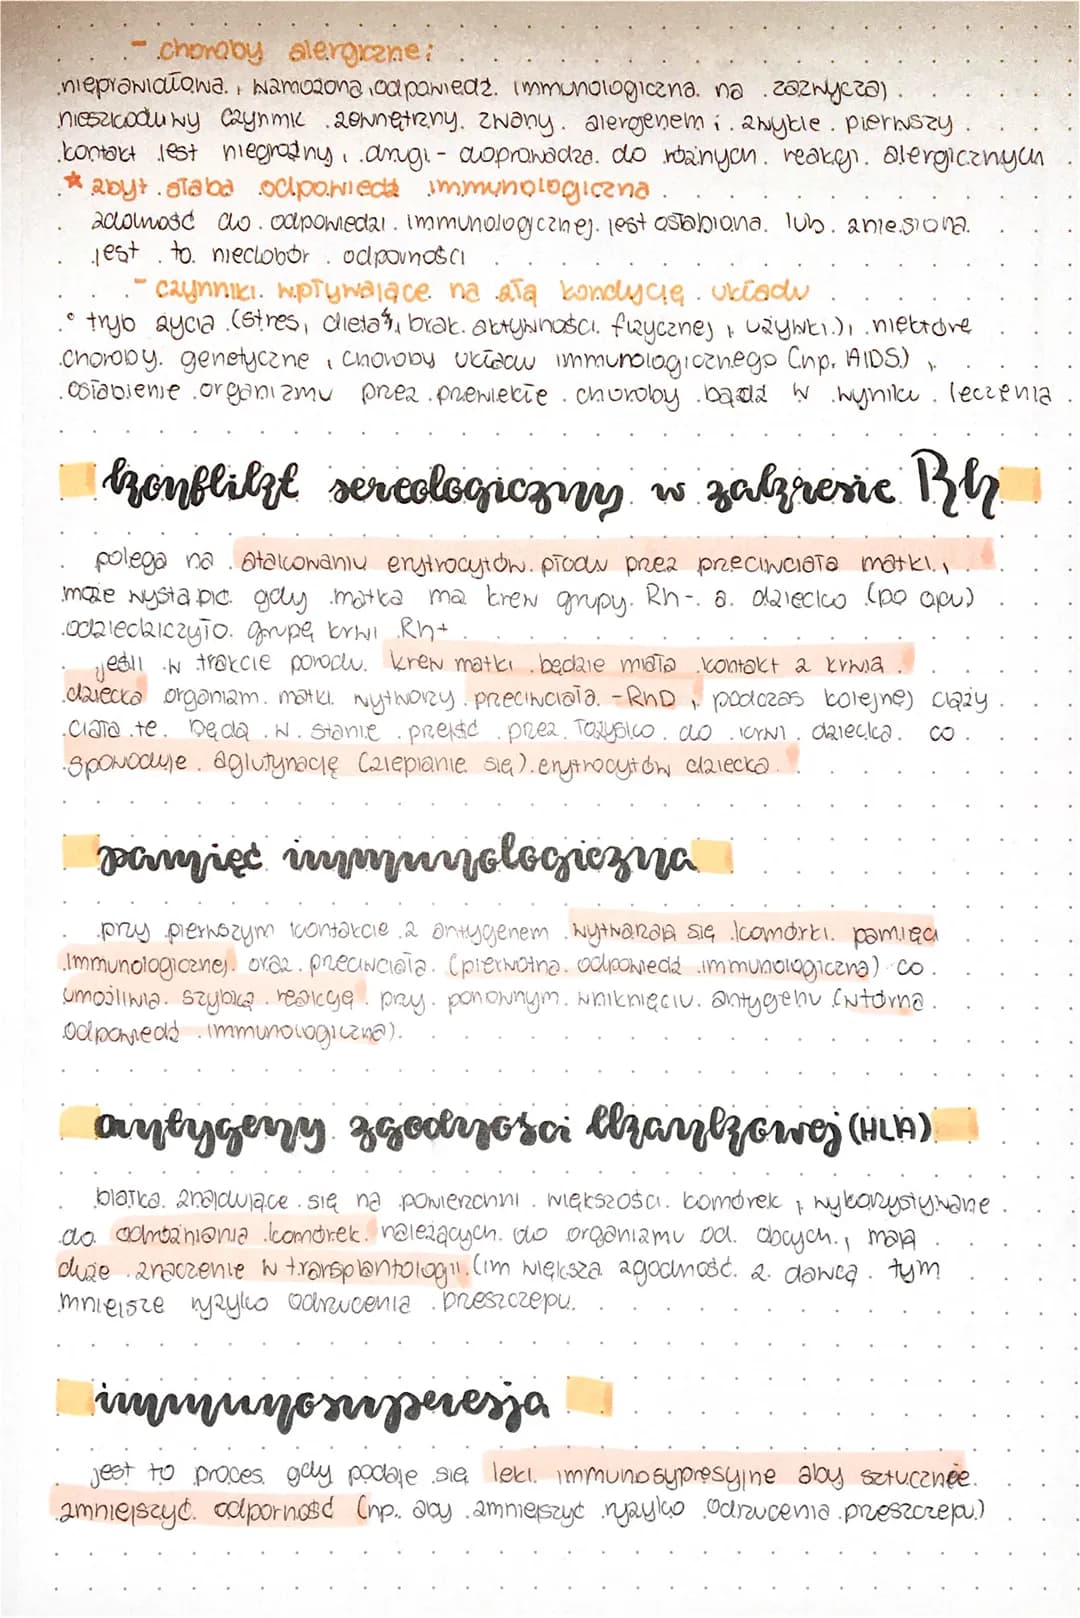 - choroby alergiczne:
nieprawidłowa, wzmożona odpowiedź immunologiczna na zazwyczaj
nieszkodliwy czynnik zewnętrzny zwany alergenem; zwykle pierwszy
kontakt jest niegroźny, drugi - doprowadza do różnych reakcji alergicznych
* zbyt słaba odpowiedź immunologiczna
zdolność do odpowiedzi immunologicznej jest osłabiona lub zniesiona
jest to niedobór odporności
- czynniki wpływające na złą kondycję układu
• tryb życia (stres, dieta, brak aktywności fizycznej, używki), niektóre
choroby genetyczne, choroby układu immunologicznego (np. AIDS),
osłabienie organizmu przez przewlekłe choroby bądź w wyniku leczenia
konflikt sereologiczny w zakresie Rh
polega na atakowaniu erytrocytów płodu przez przeciwciała matki,
może wystąpić gdy matka ma krew grupy Rh- a dziecko (po ojcu)
odziedziczyło grupę krwi Rh+
jeśli w trakcie porodu krew matki będzie miała kontakt z krwią
dziecka organizm matki wytworzy przeciwciała -RhD, podczas kolejnej ciąży
ciała te będą w stanie przejść przez łożysko do krwi dziecka co
spowoduje aglutynację (zlepianie się) erytrocytów dziecka
pamięć immunologiczna
przy pierwszym kontakcie z antygenem wytwarzają się komórki pamięci
immunologicznej oraz przeciwciała (pierwotna odpowiedź immunologiczna) co
umożliwia szybką reakcję przy ponownym wniknięciu antygenu (wtórna
odpowiedź immunologiczna).
antygeny zgodności tkankowej (HLA)
białka znajdujące się na powierzchni większości komórek, wykorzystywane
do odróżniania komórek należących do organizmu od obcych, mają
duże znaczenie w transplantologii (im większa zgodność z dawcą tym
mniejsze ryzyko odrzucenia przeszczepu.
immunosupresja
jest to proces gdy podaje się leki immunosypresyjne aby sztucznie
zmniejszyć odporność (np. aby zmniejszyć ryzyko odrzucenia przeszczepu)